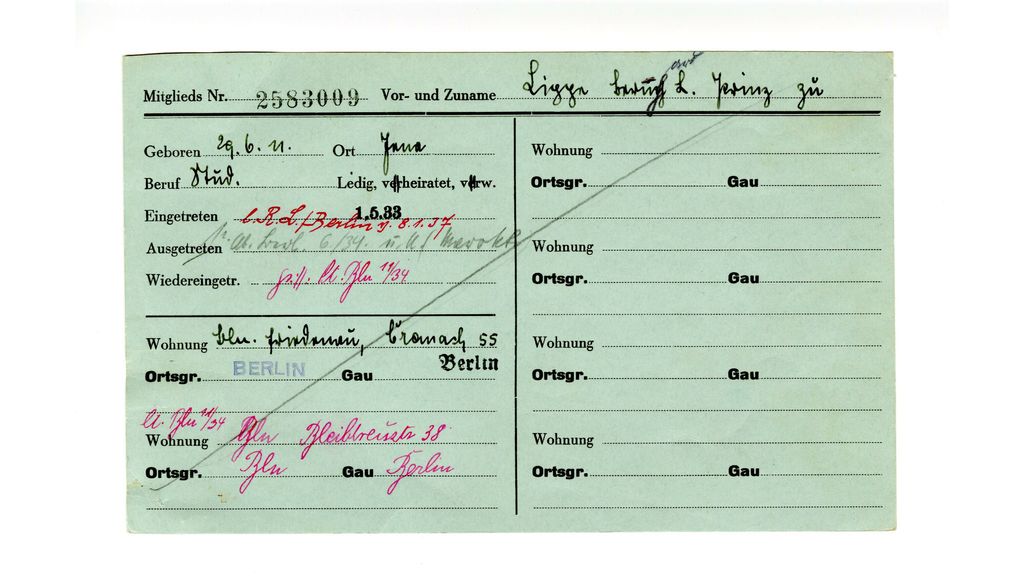 Mitglieds Nr. 2583009 Vor- und Zuname Lippe Bernh L. Prinz zu
ard
Geboren 29.6.11. Ort Jena
Beruf Stud. Ledig, verheiratet, verw.
Eingetreten 1.5.33
l. R. L./Berlin v. 8.1.37
Ausgetreten 6/34. u.
Wiedereingetr. lt. Bln 11/34
Wohnung Bln. Friedenau, 55
Ortsgr. BERLIN Gau Berlin
lt. Bln 11/34
Wohnung Bln Bleibtreustr 38
Ortsgr. Bln Gau Berlin
Wohnung
Ortsgr. Gau
Wohnung
Ortsgr. Gau
Wohnung
Ortsgr. Gau
Wohnung
Ortsgr. Gau